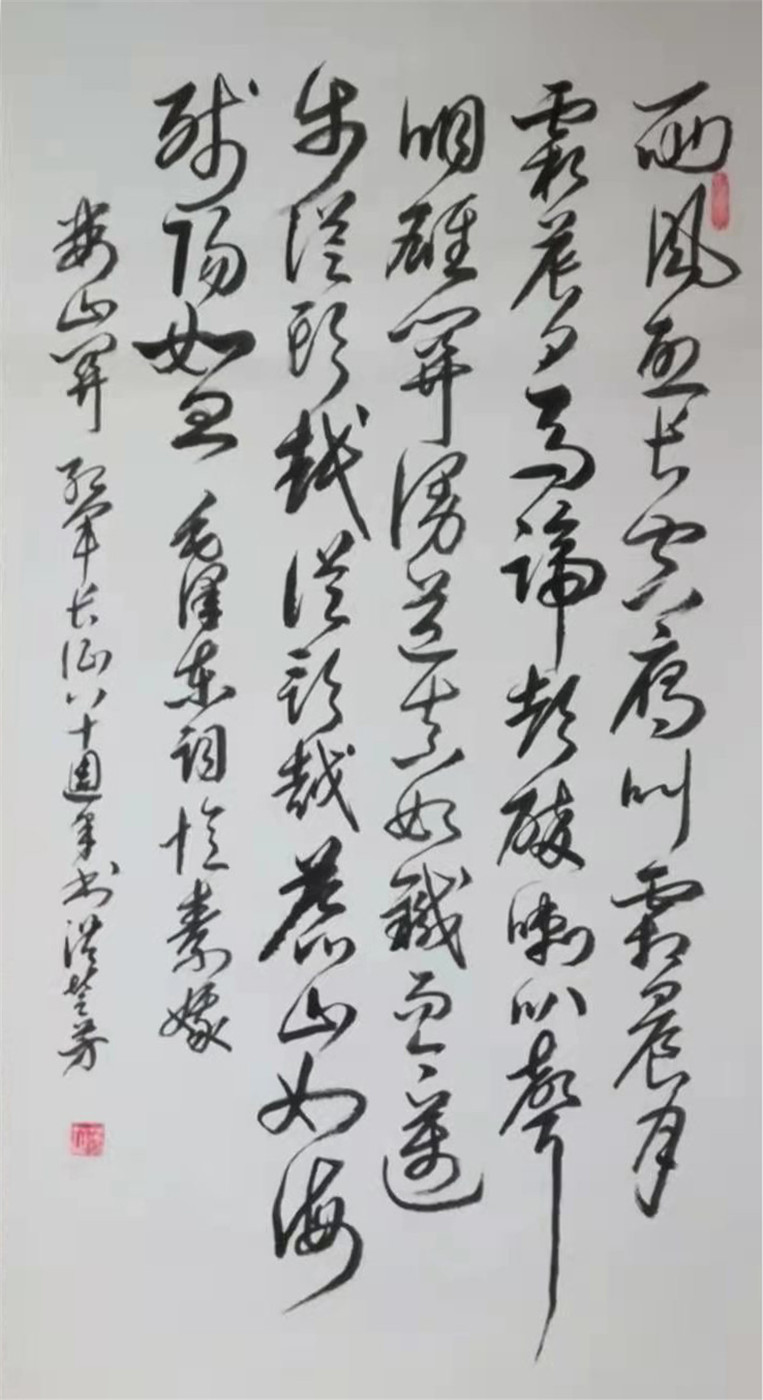 西風烈長空雁叫霜晨月
霜晨月馬蹄聲碎喇叭聲
咽雄關漫道真如鐵而今邁
步從頭越從頭越蒼山如海
殘陽如血 毛澤東詞憶秦娥
婁山關 紅軍長征八十週年书洪芳